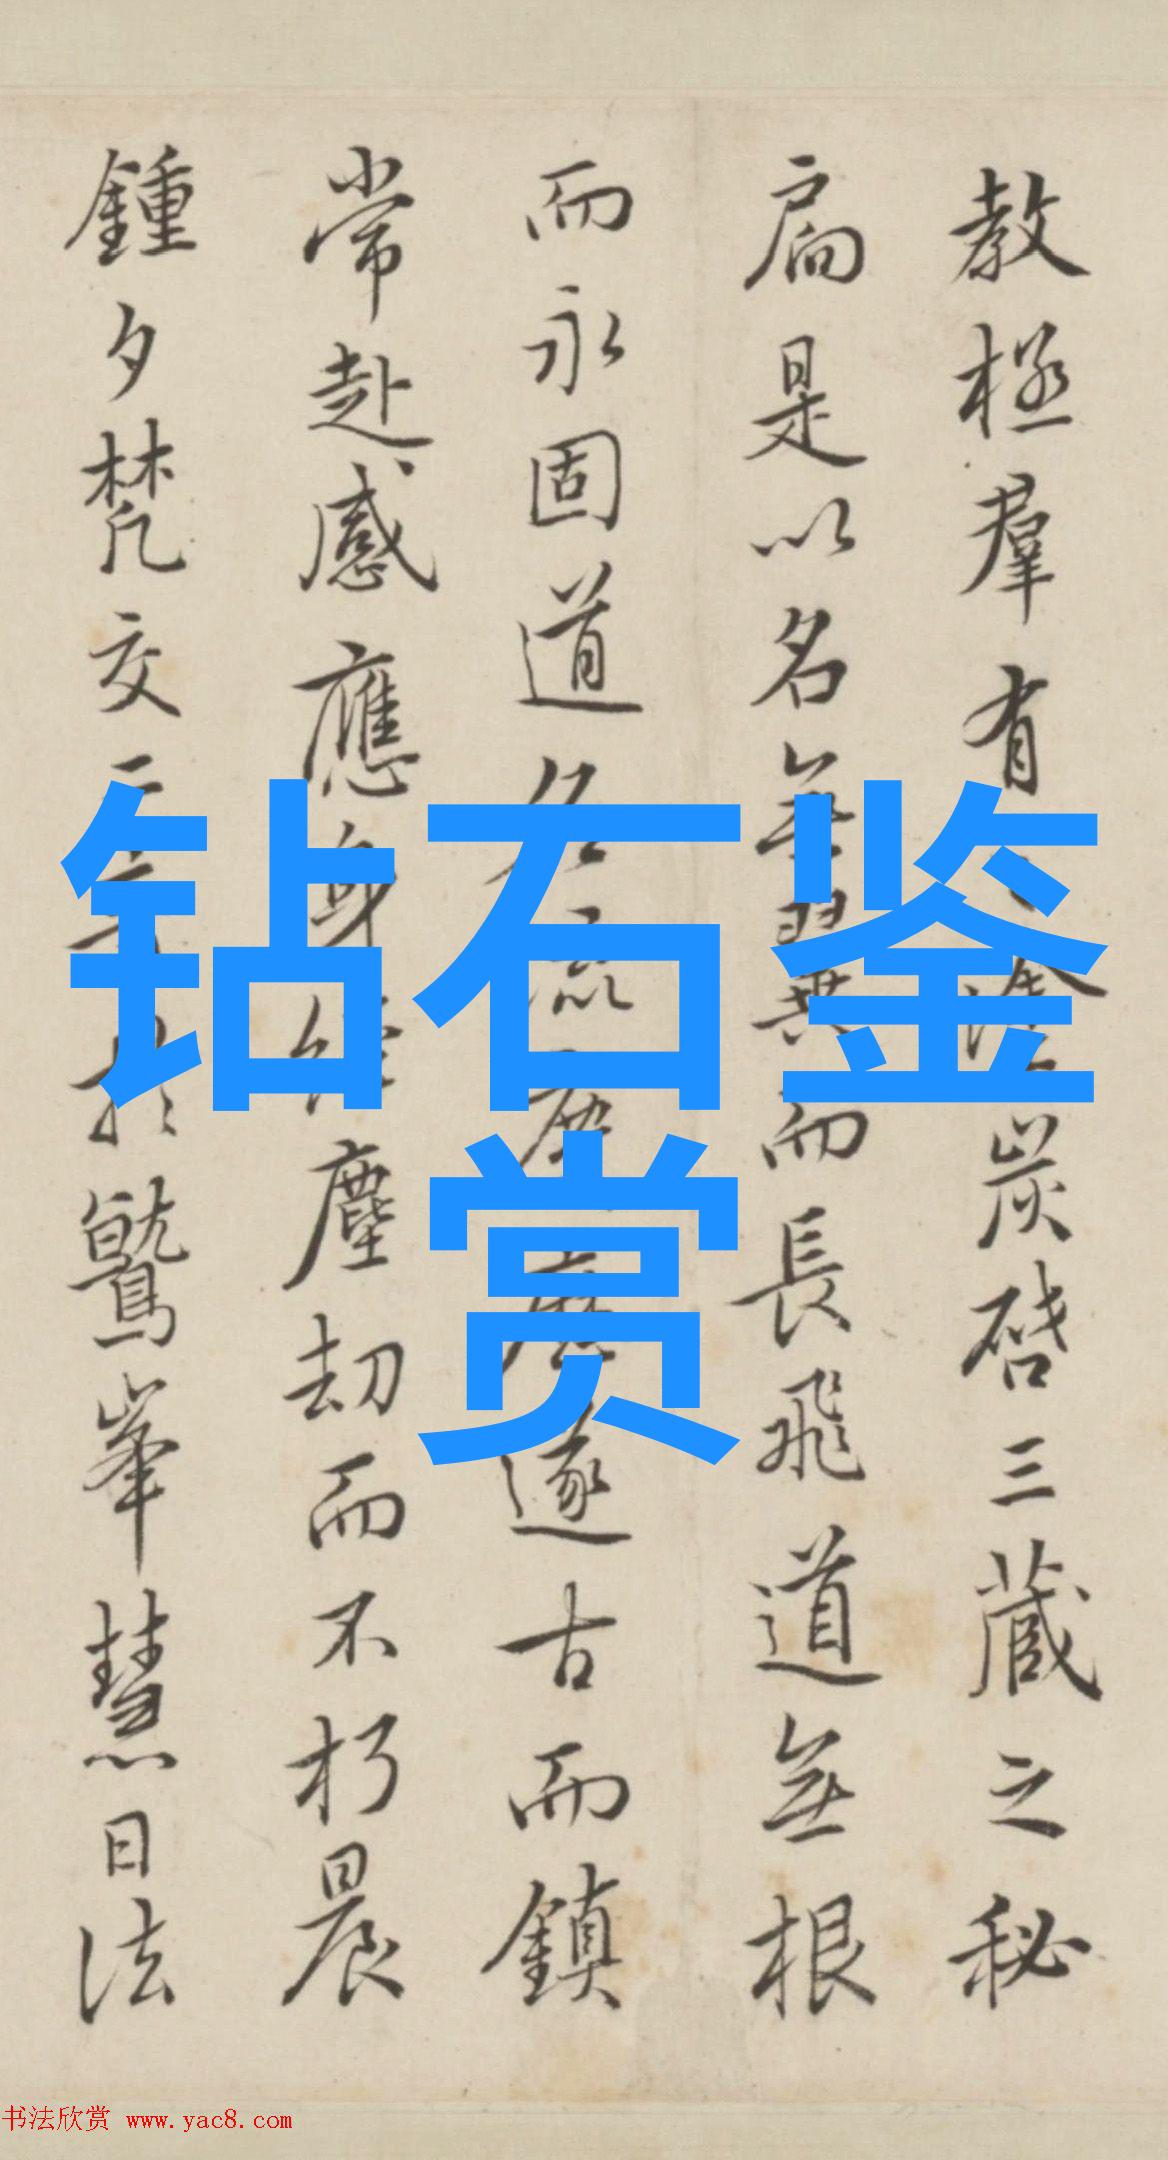 教極羣有塗炭啓三藏之秘
扃是以名無翼而長飛道無根
而永固道名流慶歷遂古而鎮
常赴感應身經塵劫而不朽晨
鍾夕梵交二音於鷲峯慧日法
钻石鉴
赏
书法欣赏 www.yac8.com